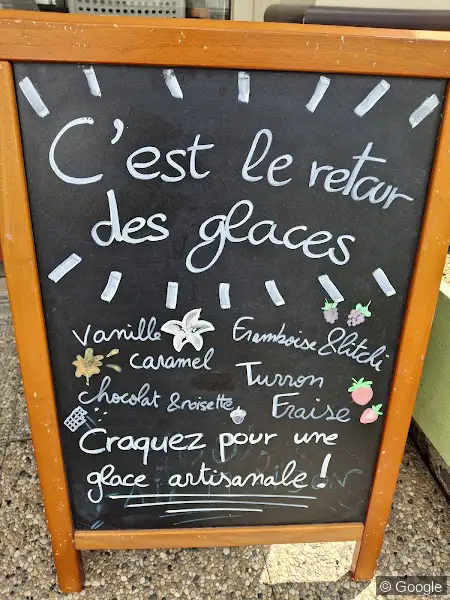 C'est le retour
des glaces
Vanille
Framboise & litchi
caramel
Turron
chocolat & noisette
Fraise
Craquez pour une
glace artisanale !
© Google